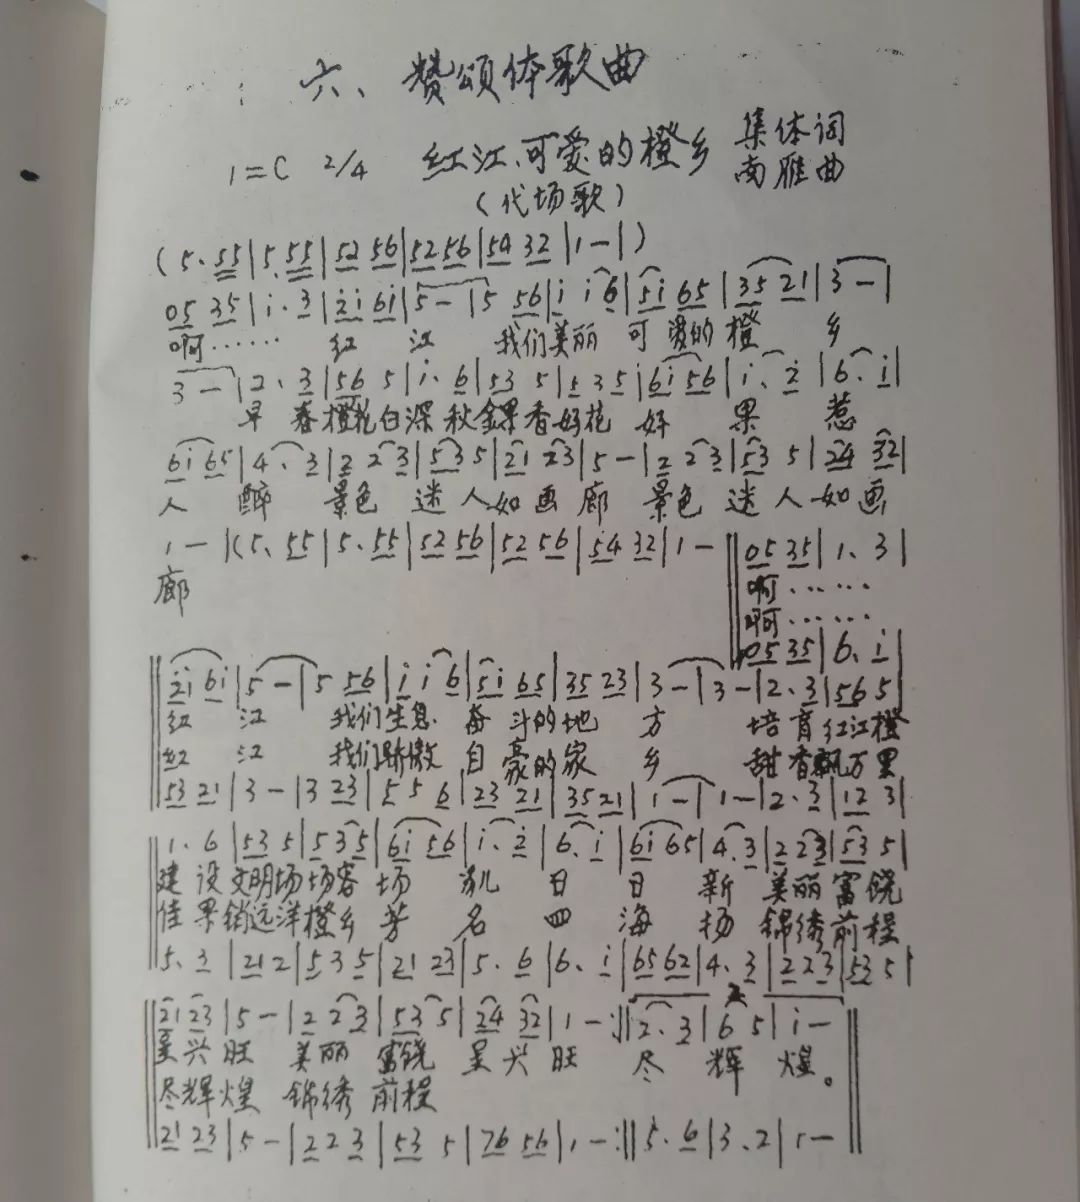 六、赞颂体歌曲
1=C 2/4 红江、可爱的橙乡 集体词
南雁曲
(代场歌)
(5. 55|5. 55|52 56|52 56|54 32|1-|)
05 35|i. 3|2i 6i|5-|5 56|i i6|5i 65|35 21|3-|
啊…… 红江 我们美丽可爱的橙乡
3-|2. 3|56 5|i. 6|53 5|5 35|6i 56|i. 2|6. i|
早春橙花白深秋金果香好花好果惹
6i 65|4. 3|2 23|53 5|21 23|5-|2 23|53 5|24 32|
人醉景色迷人如画廊景色迷人如画
1-|(5. 55|5. 55|52 56|52 56|54 32|1- 05 35|1. 3|
廊 啊……
啊……
05 35|6. i|
2i 6i|5-|5 56|i i6|5i 65|35 23|3-|3-|2. 3|56 5|
红江 我们生息奋斗的地方 培育红江橙
红江 我们骄傲自豪的家乡 甜香飘万里
53 21|3-|3 23|5 5 6|23 21|35 21|1-|1-|2. 3|12 3|
1. 6|53 5|5 35|6i 56|i. 2|6. i|6i 65|4. 3|2 23|53 5|
建设文明场场容场貌日日新美丽富饶
佳果销远洋橙乡芳名四海扬锦绣前程
5. 3|21 2|5 3 5|21 23|5. 6|6. i|65 62|4. 3|2 2 3|53 5|
21 23|5-|2 23|53 5|24 32|1-:|2. 3|6 5|i-
呈兴旺 美丽富饶呈兴旺 尽辉煌。
尽辉煌 锦绣前程
21 23|5-|2 2 3|53 5|76 56|1-:|5. 6|3. 2|1-